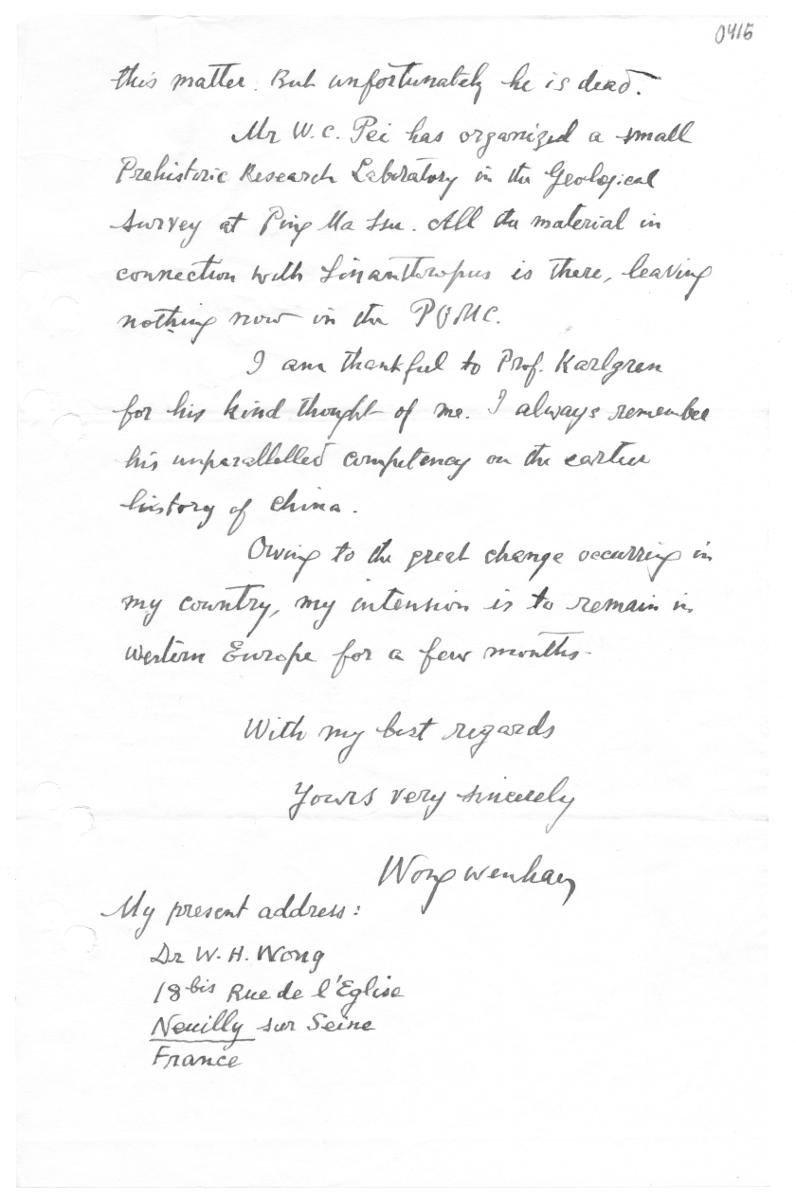 0415
this matter. But unfortunately he is dead.
Mr W.C. Pei has organized a small
Prehistoric Research Laboratory in the Geological
Survey at Ping Ma Ssu. All the material in
connection with Sinanthropus is there, leaving
nothing now in the PUMC.
I am thankful to Prof. Karlgren
for his kind thought of me. I always remember
his unparallelled competency on the earlier
history of China.
Owing to the great change occurring in
my country, my intension is to remain in
western Europe for a few months.
With my best regards
Yours very sincerely
Wong Wenhao
My present address:
Dr W. H. Wong
18bis Rue de l'Eglise
Neuilly sur Seine
France